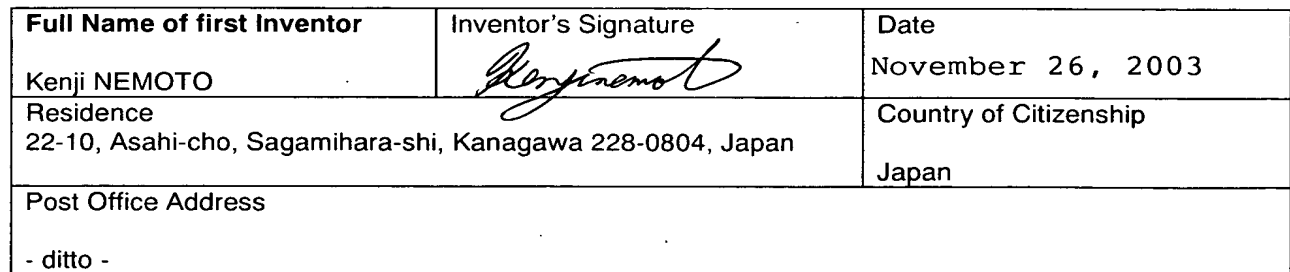 Full Name of first Inventor
Kenji NEMOTO
Inventor's Signature
Kenjinemot
Date
November 26, 2003
Residence
22-10, Asahi-cho, Sagamihara-shi, Kanagawa 228-0804, Japan
Country of Citizenship
Japan
Post Office Address
- ditto -